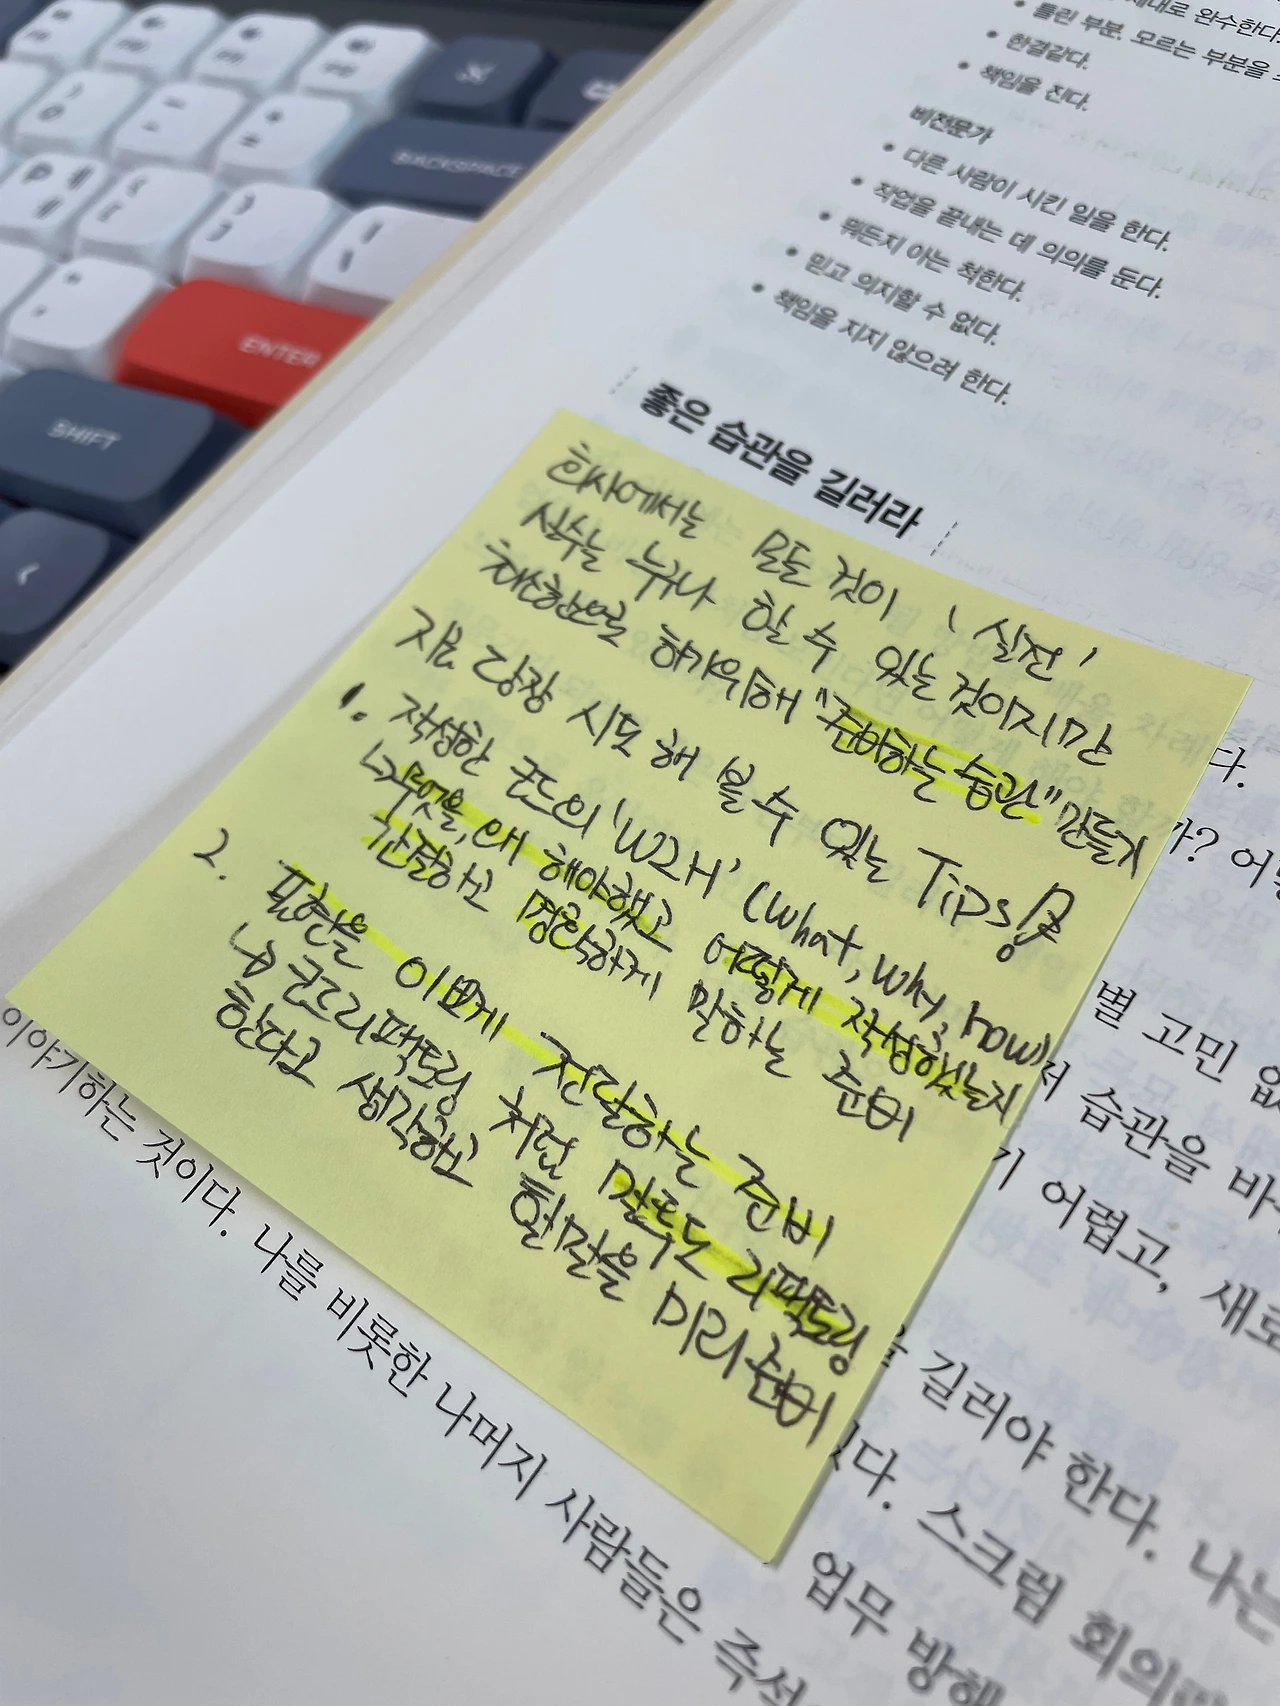 BACKSPACE
ENTER
SHIFT
제대로 완수한다.
• 틀린 부분, 모르는 부분을
• 한결같다.
• 책임을 진다.
비전문가
• 다른 사람이 시킨 일을 한다.
• 작업을 끝내는 데 의의를 둔다.
• 뭐든지 아는 척한다.
• 믿고 의지할 수 없다.
• 책임을 지지 않으려 한다.
좋은 습관을 길러라
회사에서는 모든 것이 '실전'
실수는 누구나 할 수 있는 것이지만
최소한으로 하기위해 "준비하는 습관" 만들기
지금 당장 시도 해 볼 수 있는 Tips!
1. 작성한 코드의 'W2H' (What, why, how)
↳ 무엇을, 왜 해야했고 어떻게 작성했는지
간결하고 명확하게 말하는 준비
2. 표현을 이쁘게 전달하는 준비
↳ 코드리팩토링 처럼 말투도 리팩토링
한다고 생각하고 할말을 미리 준비
다.
가?
별 고민 없
습관을 바
기 어렵고, 새로
길러야 한다. 나는
다. 스크럼 회의
업무 방해
이야기하는 것이다. 나를 비롯한 나머지 사람들은